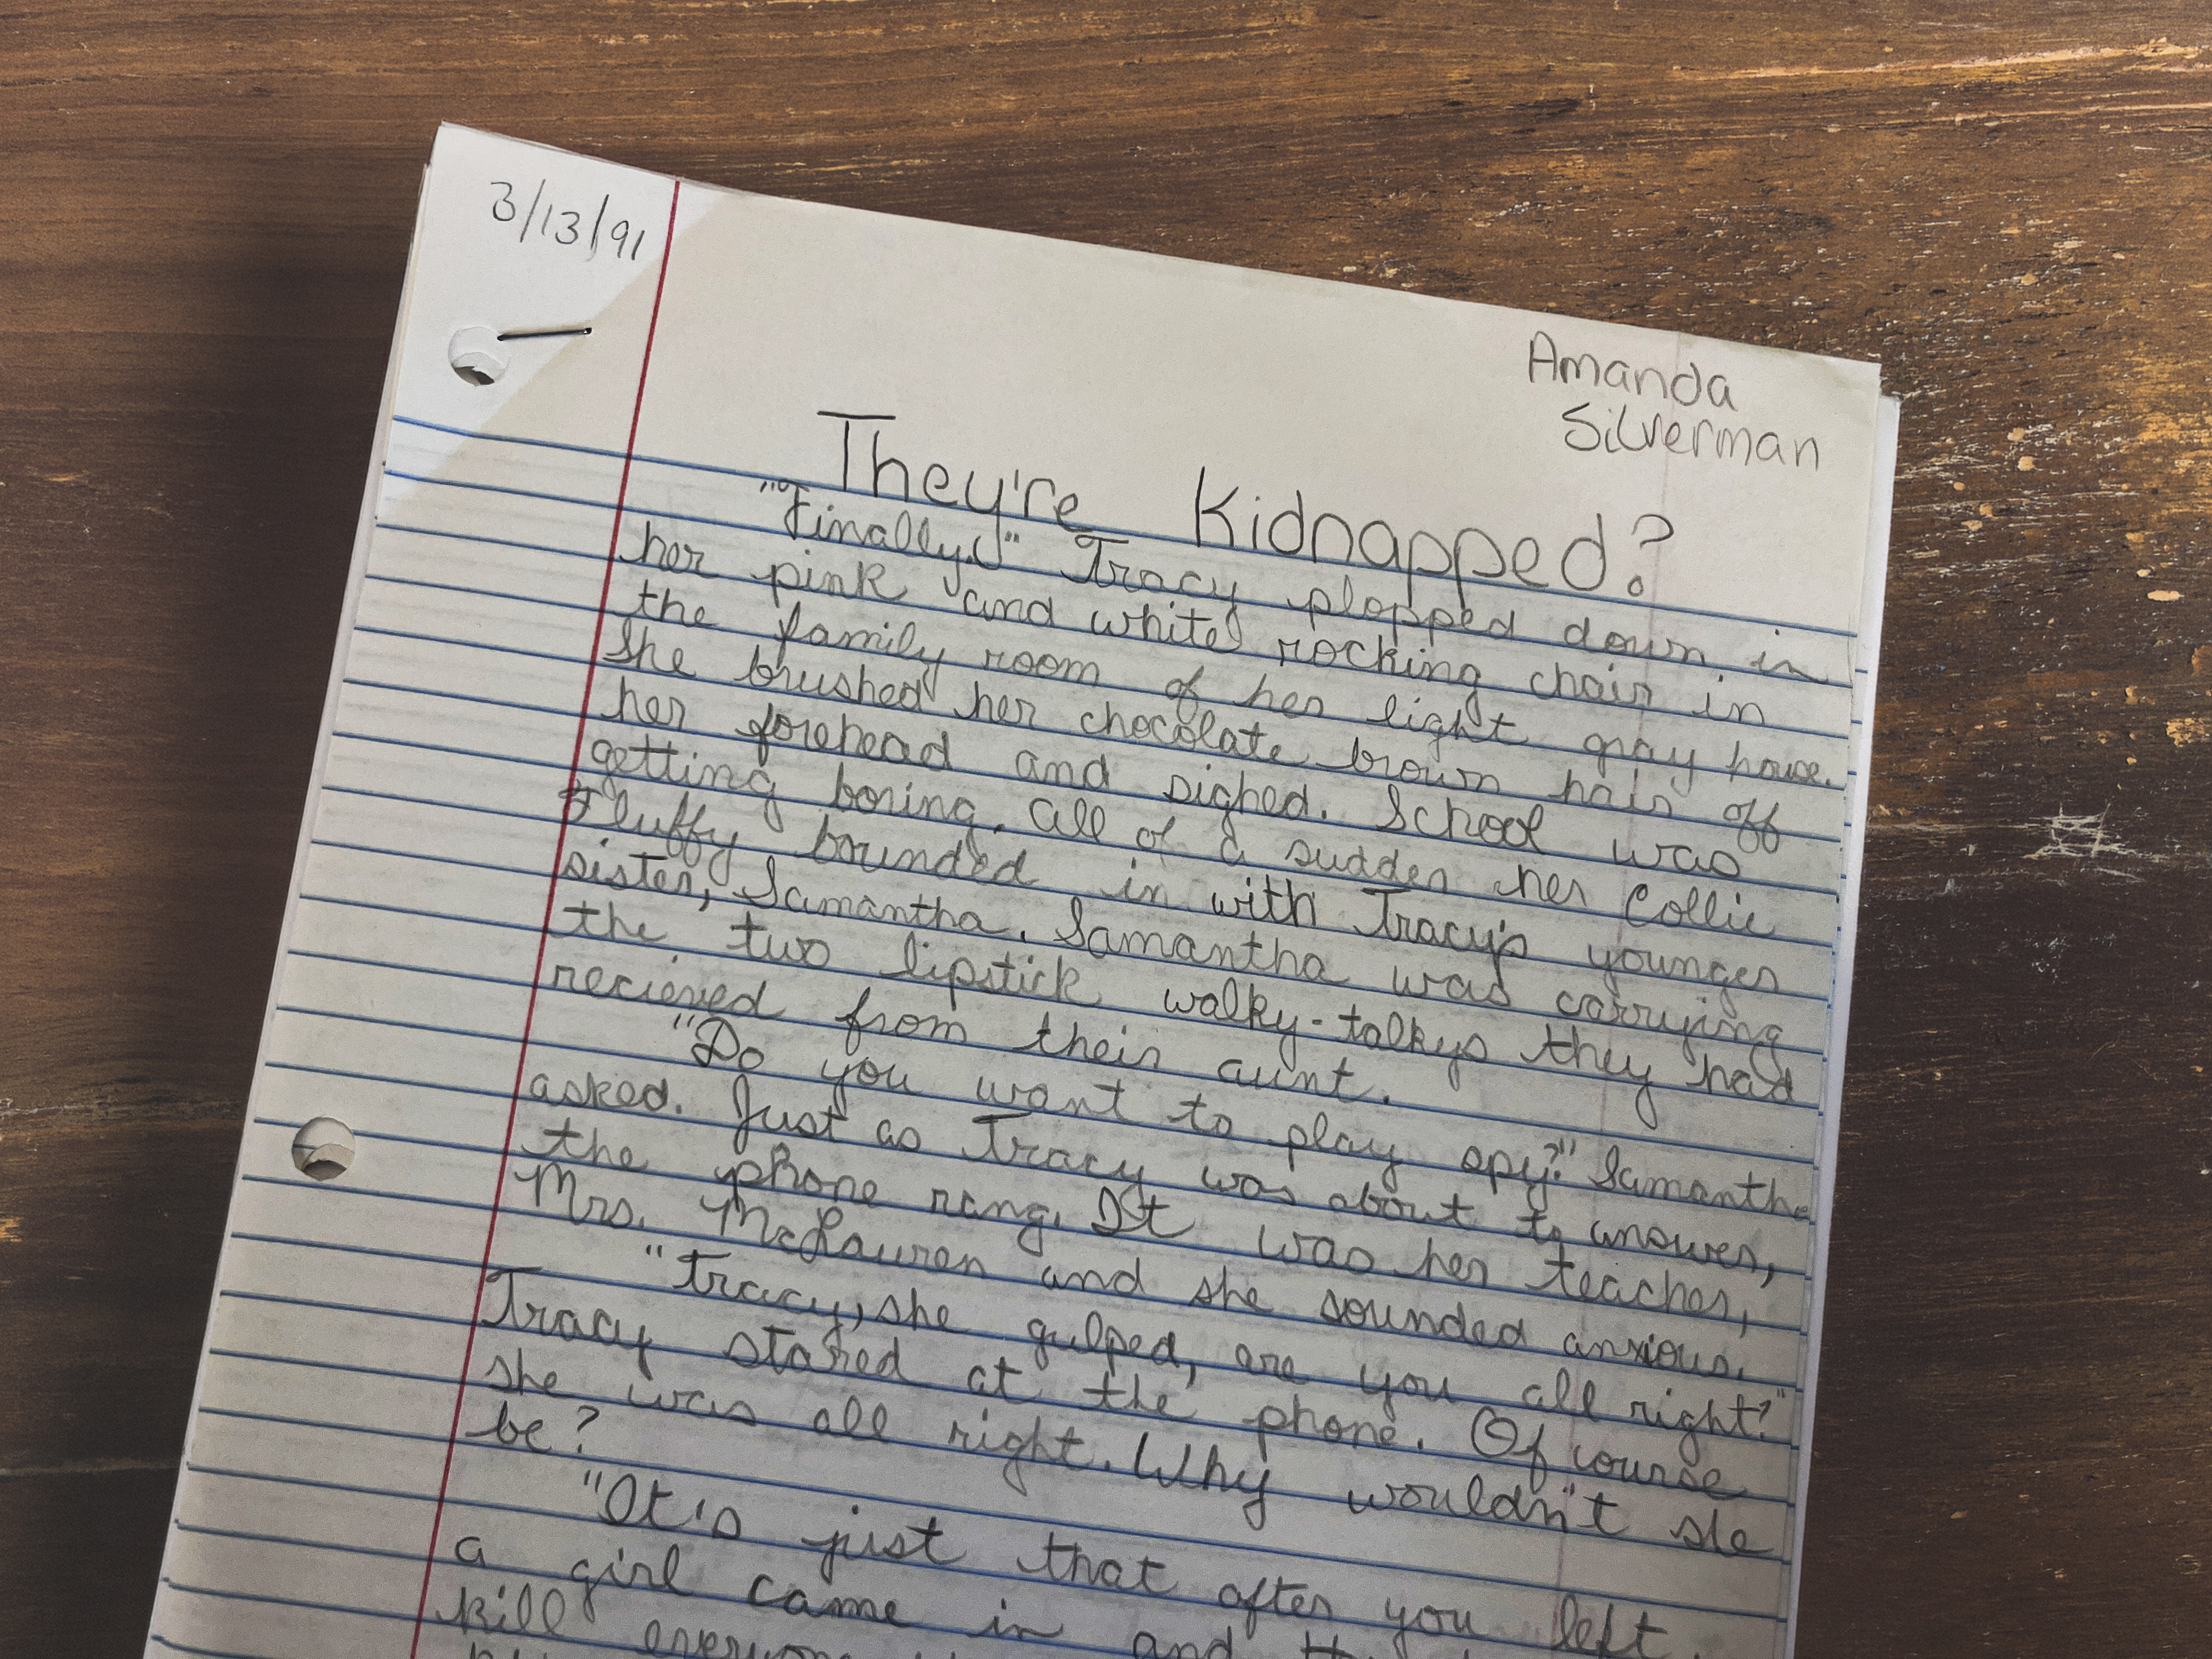 3/13/91
Amanda
Silverman
They're Kidnapped?
"Finally!" Tracy plopped down in
her pink and white rocking chair in
the family room of her light gray house.
She brushed her chocolate brown hair off
her forehead and sighed. School was
getting boring. All of a sudden her Collie
Fluffy bounded in with Tracy's younger
sister, Samantha. Samantha was carrying
the two lipstick walky-talkys they had
recieved from their aunt.
"Do you want to play spy?" Samantha
asked. Just as Tracy was about to answer,
the phone rang. It was her teacher,
Mrs. McLauren and she sounded anxious.
"Tracy, she gulped, are you all right?"
Tracy stared at the phone. Of course
she was all right. Why wouldn't she
be?
"It's just that after you left
a girl came in and
kill everyone